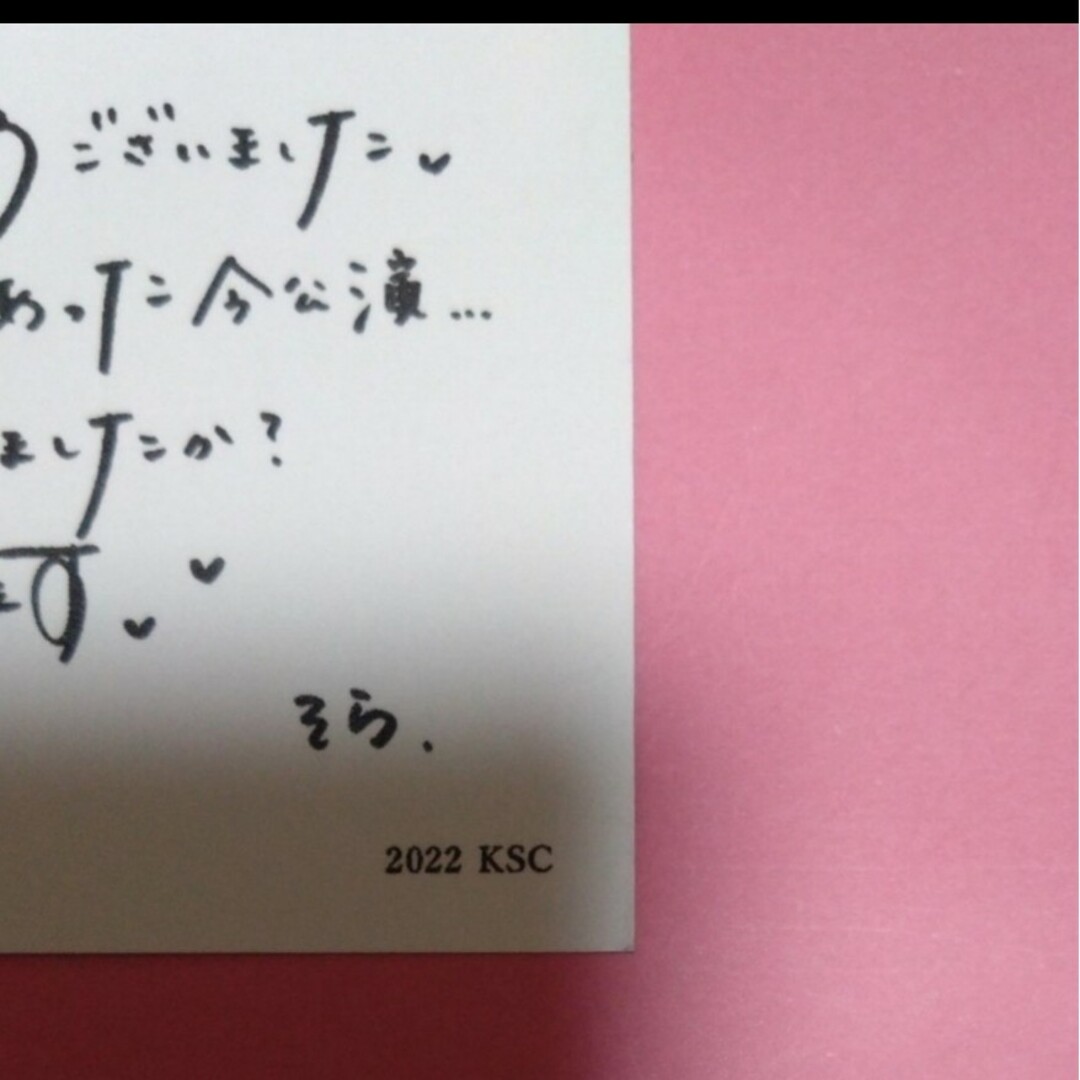 ございました♥
あった今公演...
ましたか?
ます♥♥
そら.
2022 KSC